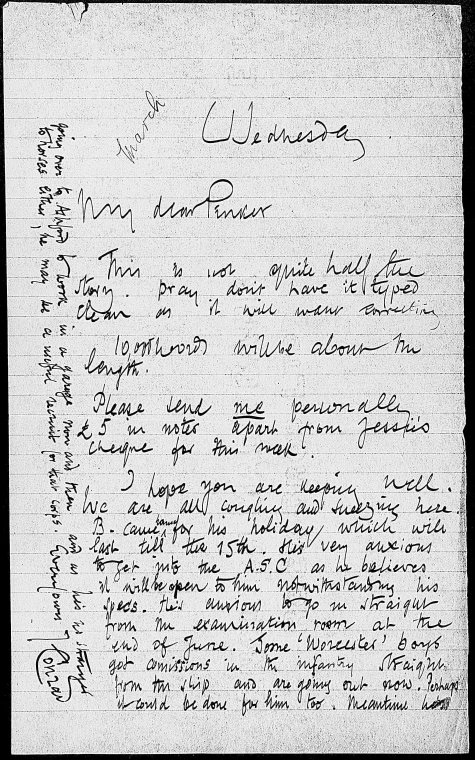 March
Wednesday
My dear Pinker
This is not quite half the
story. Pray don't have it typed
clean as it will want correcting
10000 words will be about the
length.
Please send me personally
£5 in notes apart from Jessie's
cheque for this week.
I hope you are keeping well.
We are all coughing and sneezing here.
B. came home for his holiday which will
last till the 15th. He is very anxious
to get into the A.S.C as he believes
it will be open to him notwithstanding his
specs. He is anxious to go in straight
from the examination room at the
end of June. Some 'Worcester' boys
got comissions in the infantry straight
from the ship and are going out now. Perhaps
it could be done for him too. Meantime he is
going over to Ashford to work in a garage now and then and as he is no stranger
to horses either, he may be a useful recruit for that corps. Ever yours
Conrad